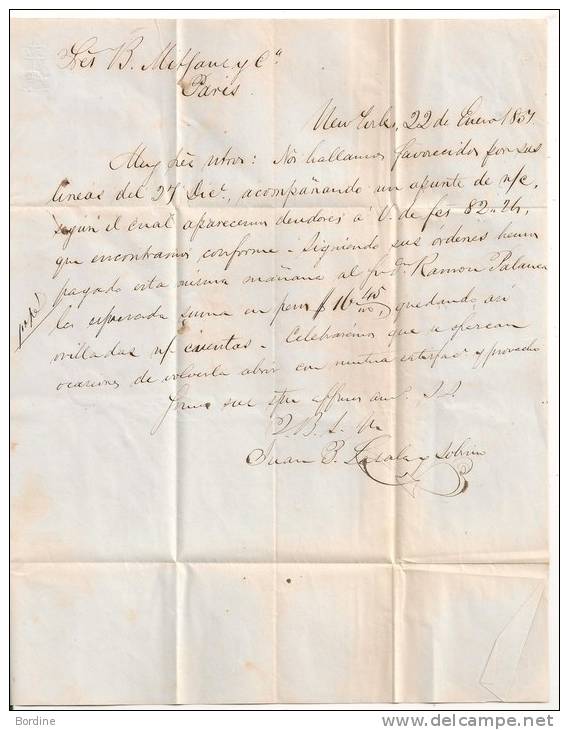 Sres B. Metfane y Ca
Paris
New York, 22 de Enero 1857
Muy Sres ntros: Nos hallamos favorecidos por sus
líneas del 27 Dice, acompañando un apunte de n/c,
segun el cual aparecemos deudores á V. de fcs 82-26,
que encontramos conforme - Siguiendo sus órdenes hemos
pagado esta misma mañana al Sr Dn Ramon Palanca
la espresada suma en pesos $ 16 45/100, quedando así
ovilladas n/ cuentas - Celebraremos que se ofrezcan
ocasiones de volverla abrir con mutua satisfac y provecho
Somos sus
Q.B.S.M
Juan B. Lasala y Sobrino
Bordine
www.delcampe.net